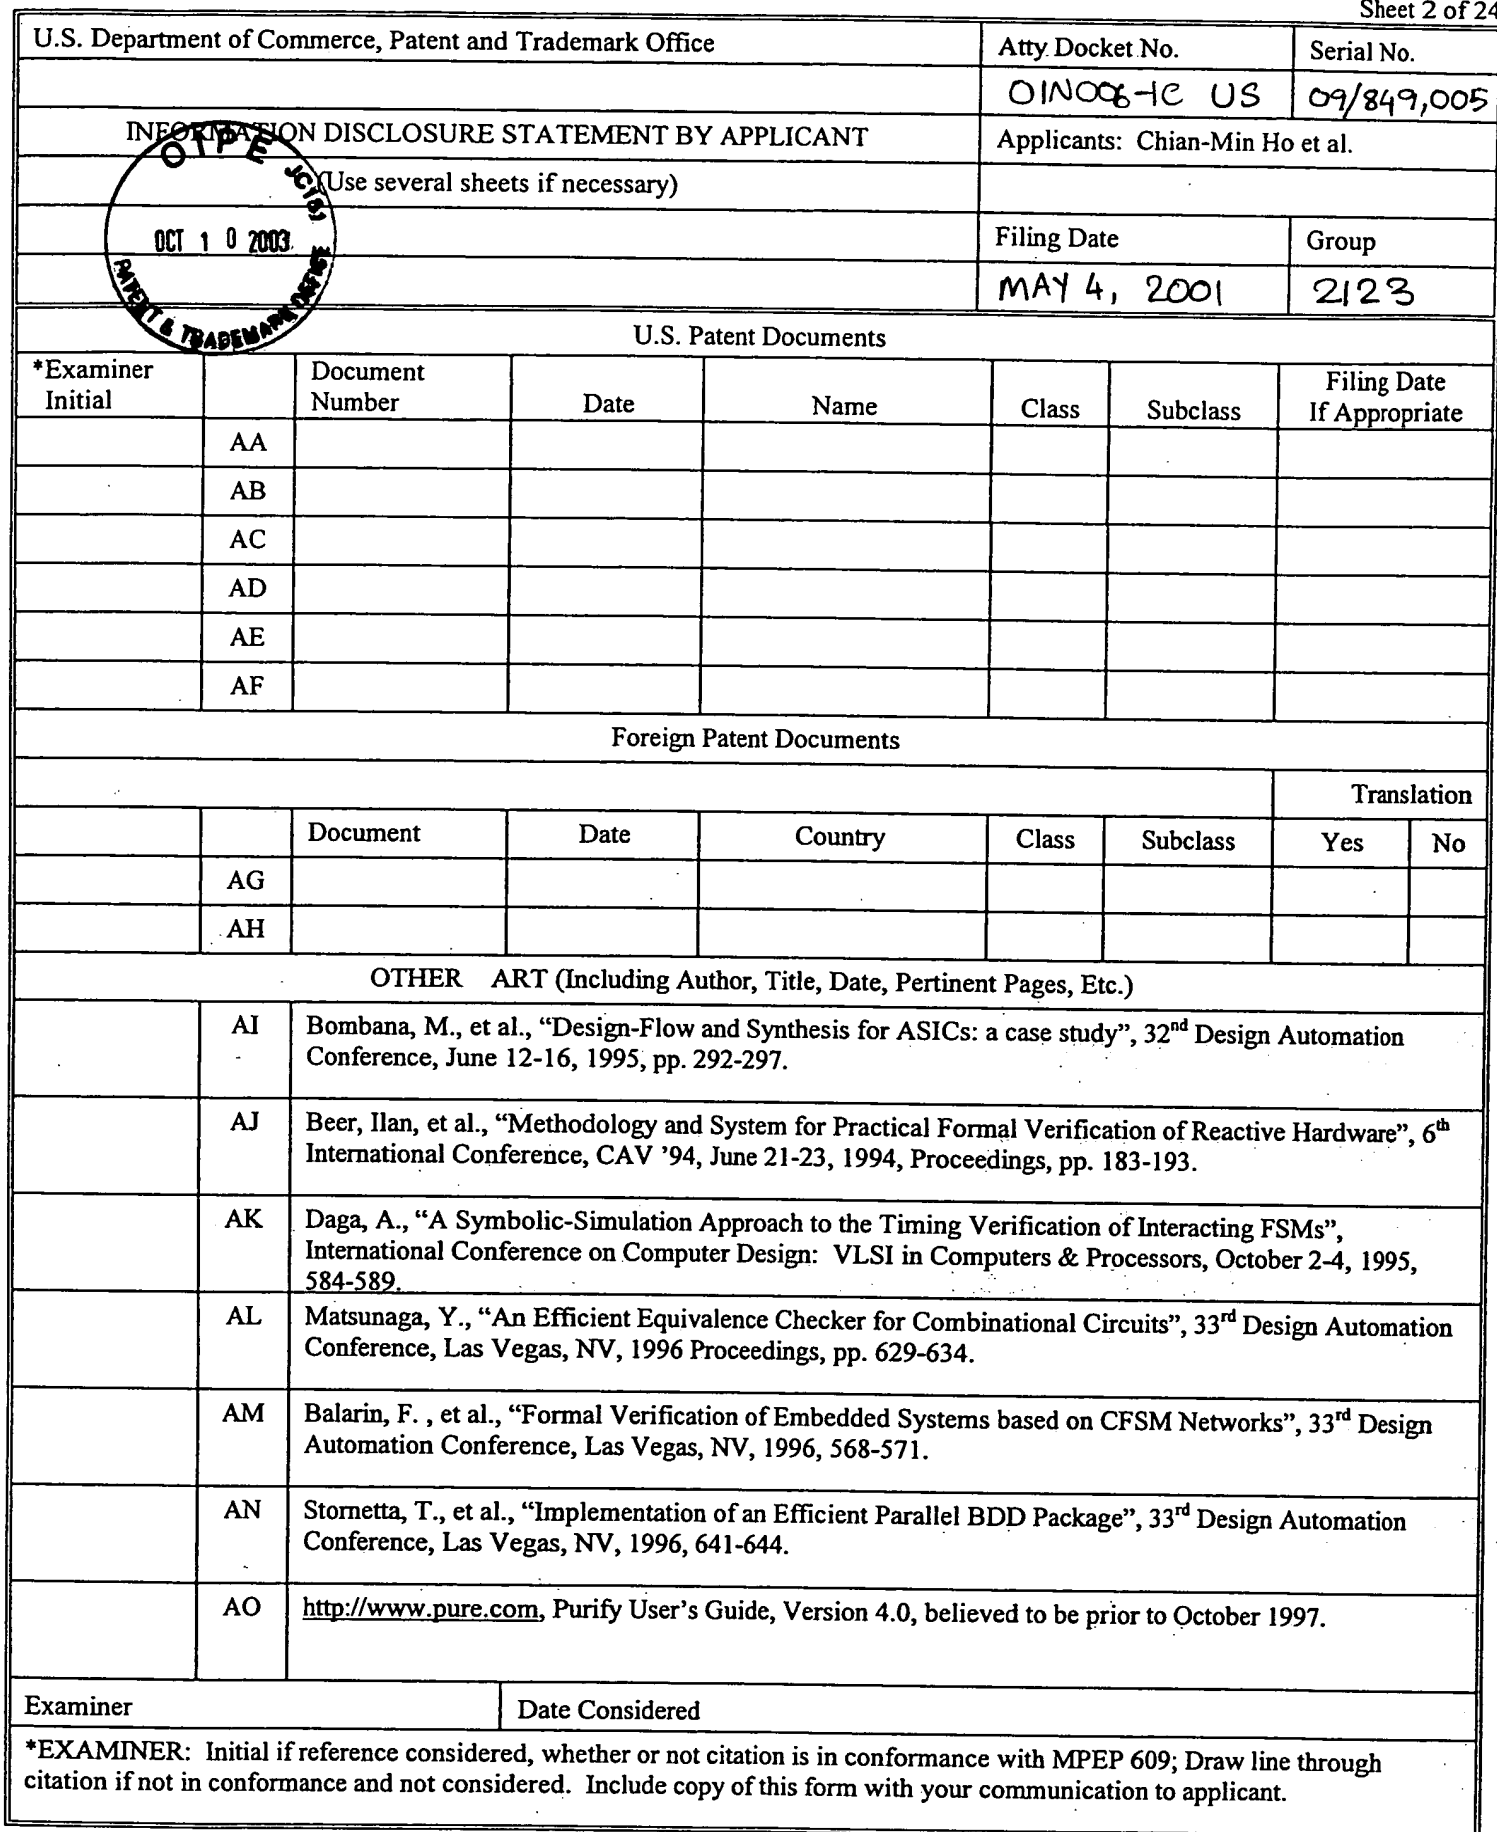 Sheet 2 of 24
U.S. Department of Commerce, Patent and Trademark Office
Atty Docket No.
Serial No.
OIN006-1C US
09/849,005
INFORMATION DISCLOSURE STATEMENT BY APPLICANT
Applicants: Chian-Min Ho et al.
(Use several sheets if necessary)
OIPE JC161
OCT 10 2003
PATENT & TRADEMARK OFFICE
Filing Date
Group
MAY 4, 2001
2123
U.S. Patent Documents
*Examiner
Initial
Document
Number
Date
Name
Class
Subclass
Filing Date
If Appropriate
AA
AB
AC
AD
AE
AF
Foreign Patent Documents
Translation
Document
Date
Country
Class
Subclass
Yes
No
AG
AH
OTHER ART (Including Author, Title, Date, Pertinent Pages, Etc.)
AI
Bombana, M., et al., “Design-Flow and Synthesis for ASICs: a case study”, 32nd Design Automation
Conference, June 12-16, 1995, pp. 292-297.
AJ
Beer, Ilan, et al., “Methodology and System for Practical Formal Verification of Reactive Hardware”, 6th
International Conference, CAV ’94, June 21-23, 1994, Proceedings, pp. 183-193.
AK
Daga, A., “A Symbolic-Simulation Approach to the Timing Verification of Interacting FSMs”,
International Conference on Computer Design: VLSI in Computers & Processors, October 2-4, 1995,
584-589.
AL
Matsunaga, Y., “An Efficient Equivalence Checker for Combinational Circuits”, 33rd Design Automation
Conference, Las Vegas, NV, 1996 Proceedings, pp. 629-634.
AM
Balarin, F. , et al., “Formal Verification of Embedded Systems based on CFSM Networks”, 33rd Design
Automation Conference, Las Vegas, NV, 1996, 568-571.
AN
Stornetta, T., et al., “Implementation of an Efficient Parallel BDD Package”, 33rd Design Automation
Conference, Las Vegas, NV, 1996, 641-644.
AO
http://www.pure.com, Purify User’s Guide, Version 4.0, believed to be prior to October 1997.
Examiner
Date Considered
*EXAMINER: Initial if reference considered, whether or not citation is in conformance with MPEP 609; Draw line through
citation if not in conformance and not considered. Include copy of this form with your communication to applicant.